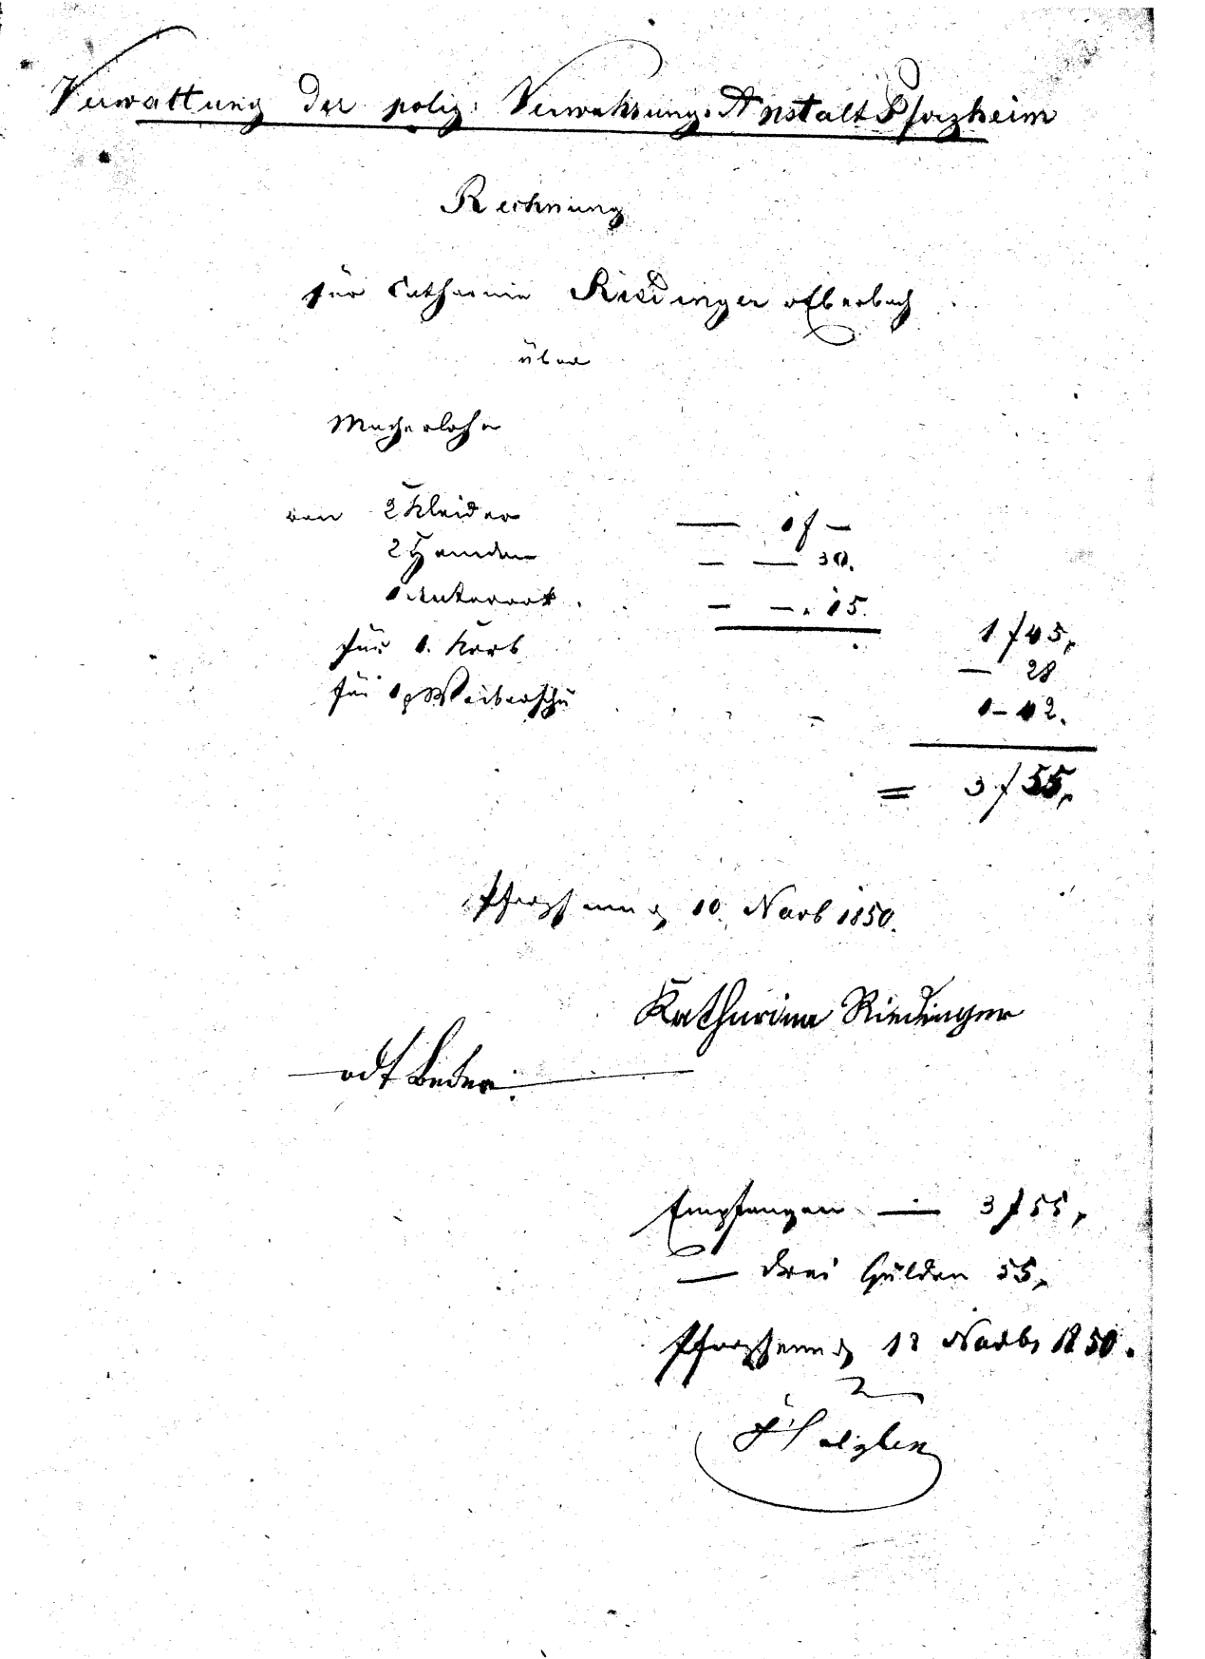 Verwaltung der poliz: Verwahrungs-Anstalt Pforzheim
Rechnung
für Catharina Riedinger v Eberbach
über
Macherlohn
von 2 Kleider — 1 f —
2 Hemden — — 30.
1 Unterrock — — 15.
1 f 45,
für 1. Korb — 28
für 1 p Weiberschu 1 — 42.
= 3 f 55,
Pforzheim d 10. Novb 1850.
Katharina Riedinger
Empfangen — 3 f 55,
— drei Gulden 55,
Pforzheim d 12 Novbr 1850.